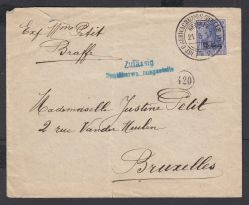 Exp Wm Petit
Braffe
Zulässig
420
Mademoiselle Justine Petit
2 rue Van der Meulen
Bruxelles